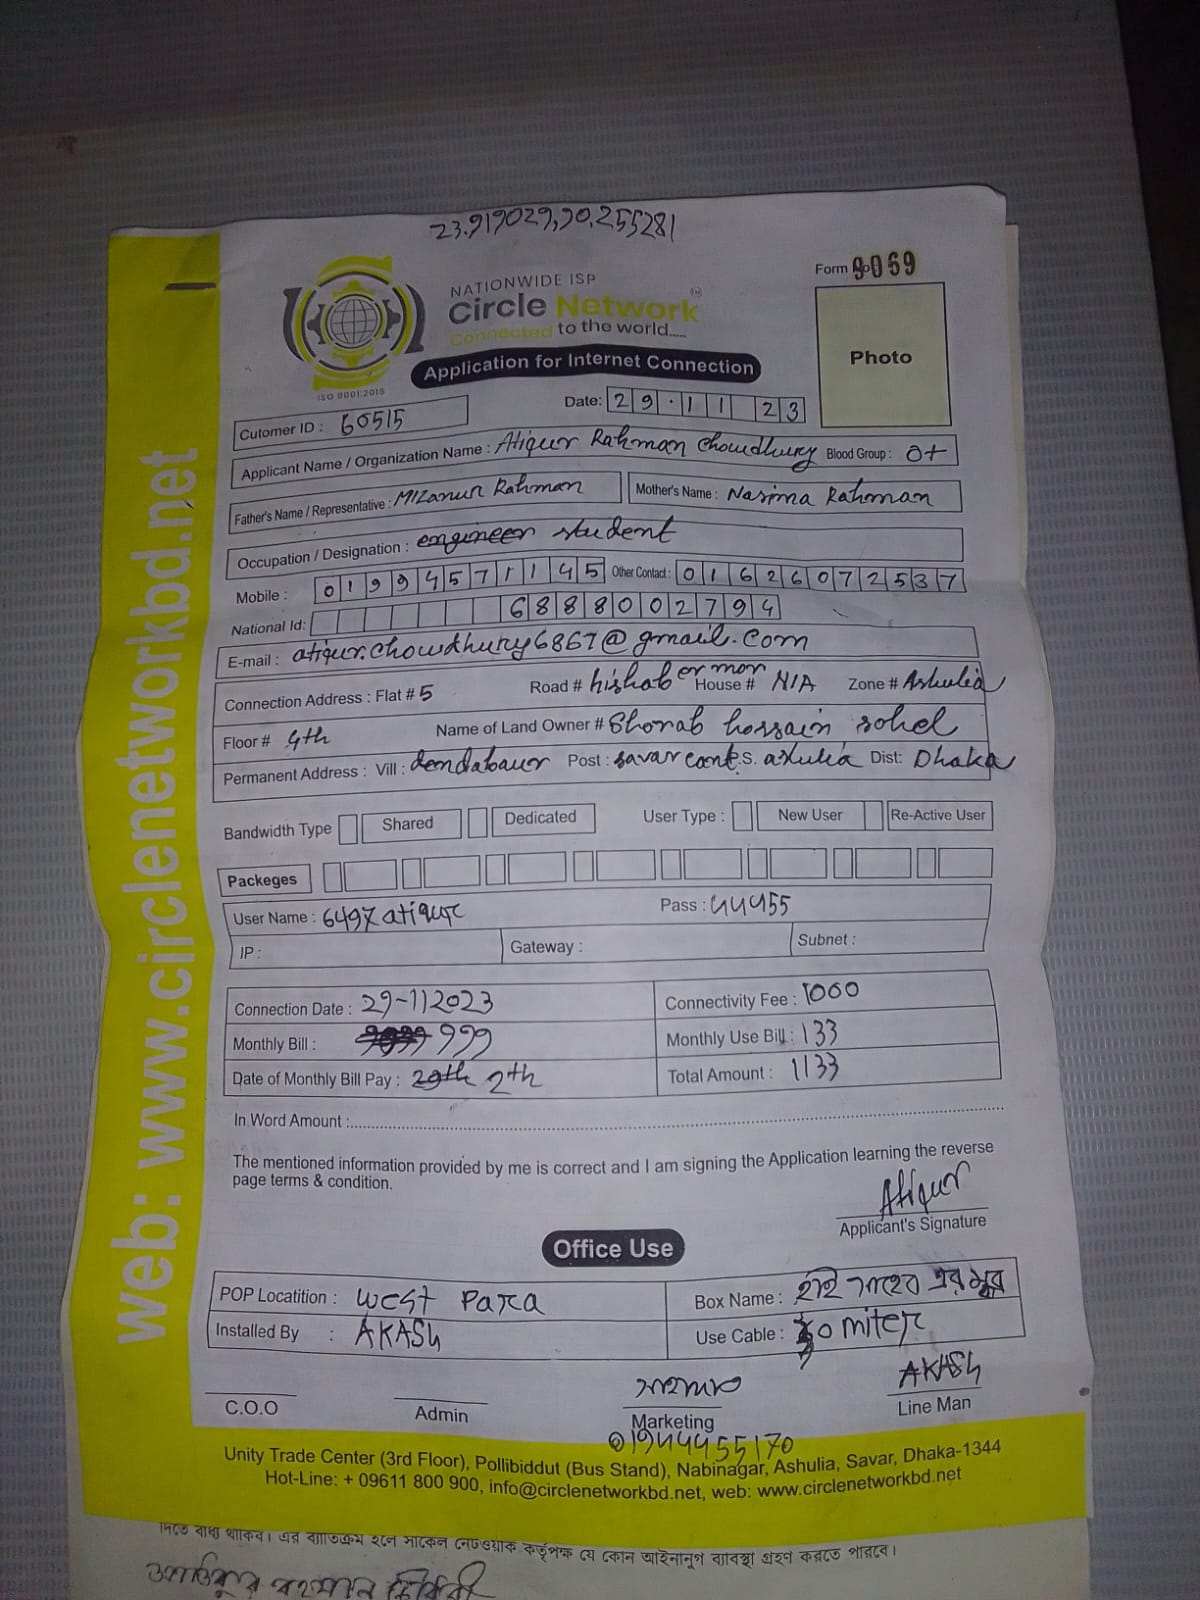 23.919029,90,255281
NATIONWIDE ISP
Circle Network
Connected to the world.....
ISO 9001:2015
Application for Internet Connection
Form No 9069
Photo
Date: 29·11 23
Cutomer ID : 60515
Applicant Name / Organization Name : Atiqur Rahman Chowdhury Blood Group : O+
Father's Name / Representative : Mizanur Rahman Mother's Name : Nasima Rahman
Occupation / Designation : engineer student
Mobile : 01994571145 Other Contact : 01626072537
National Id: 6888002794
E-mail : atiqur.chowdhury6867@gmail.com
Connection Address : Flat # 5 Road # hishab er mor House # N/A Zone # Ashulia
Floor # 4th Name of Land Owner # Shorab hossain sohel
Permanent Address : Vill : dendabaur Post : savar cant P.S. ashulia Dist: Dhaka
Bandwidth Type Shared Dedicated User Type : New User Re-Active User
Packeges
User Name : 6497atiqur Pass : 44455
IP : Gateway : Subnet :
Connection Date : 29-112023 Connectivity Fee : 1000
Monthly Bill : 999 Monthly Use Bill : 133
Date of Monthly Bill Pay : 29th 2th Total Amount : 1133
In Word Amount :
The mentioned information provided by me is correct and I am signing the Application learning the reverse
page terms & condition.
Atiqur
Applicant's Signature
Office Use
POP Locatition : West Para Box Name : হাই সাহেব এর
Installed By : AKASh Use Cable : 30 miter
AKASh
C.O.O Admin Marketing Line Man
01944455170
Unity Trade Center (3rd Floor), Pollibiddut (Bus Stand), Nabinagar, Ashulia, Savar, Dhaka-1344
Hot-Line: + 09611 800 900, info@circlenetworkbd.net, web: www.circlenetworkbd.net
web: www.circlenetworkbd.net
দিতে বাধ্য থাকিব। এর ব্যাতিক্রম হলে সার্কেল নেটওয়ার্ক কর্তৃপক্ষ যে কোন আইনানুগ ব্যাবস্থা গ্রহণ করতে পারবে।
আতিকুর রহমান চৌধুরী